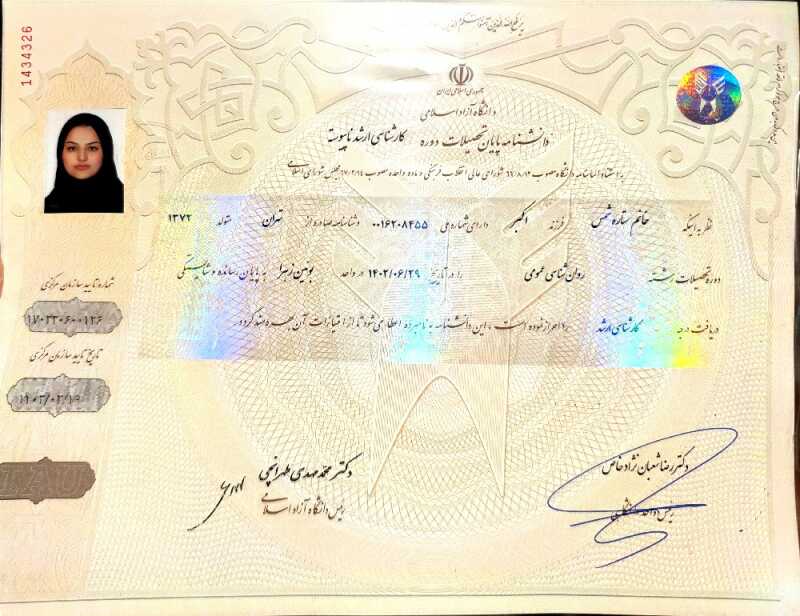 1434326
جمهوری اسلامی ایران
دانشگاه آزاد اسلامی
دانشنامه پایان تحصیلات دوره کارشناسی ارشد ناپیوسته
به استناد اساسنامه دانشگاه مصوب شورای عالی انقلاب فرهنگی و ماده واحده مصوب مجلس شورای اسلامی
نظر به اینکه خانم ستاره شمس فرزند اکبر دارای شماره ملی ۰۰۱۶۲۰۸۴۵۵ و شناسنامه صادره از تهران متولد ۱۳۷۲
دوره تحصیلات رشته روان شناسی عمومی را در تاریخ ۱۴۰۲/۰۶/۲۹ در واحد بوئین زهرا به پایان رسانده و شایستگی
دریافت درجه کارشناسی ارشد را احراز نموده است، این دانشنامه به نامبرده اعطا می شود تا از امتیازات آن بهره مند گردد.
شماره تایید سازمان مرکزی
۱۷۰۳۳۰۶۰۰۱۲۶
تاریخ تایید سازمان مرکزی
۱۴۰۳/۰۳/۱۹
دکتر رضا شعبان نژاد خاص
رئیس واحد
دکتر محمد مهدی طهرانچی
رئیس دانشگاه آزاد اسلامی